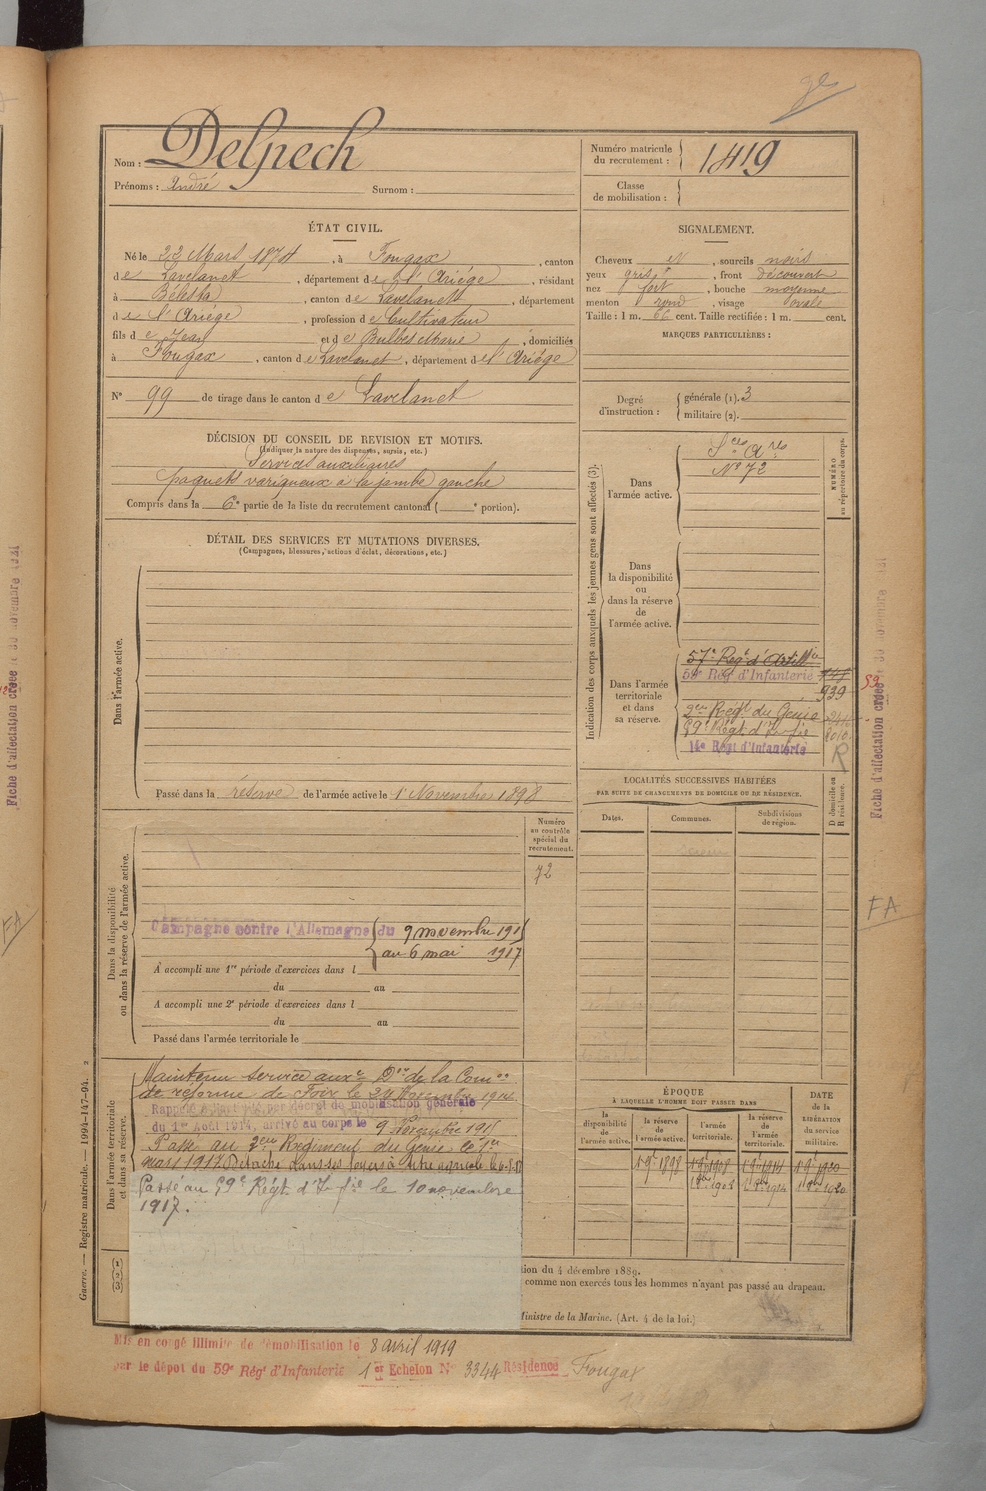 Nom : Delpech
Prénoms : André Surnom :
Numéro matricule
du recrutement : 1419
Classe
de mobilisation :
ÉTAT CIVIL.
Né le 22 Mars 1874, à Fougax, canton
de Lavelanet, département de l'Ariége, résidant
à Bélesta, canton de Lavelanet, département
de l'Ariége, profession de Cultivateur
fils de Jean et de Bulbes Marie, domiciliés
à Fougax, canton de Lavelanet, département de l'Ariége
N° 99 de tirage dans le canton de Lavelanet
SIGNALEMENT.
Cheveux et, sourcils noirs
yeux gris, front découvert
nez fort, bouche moyenne
menton rond, visage ovale
Taille : 1 m. 66 cent. Taille rectifiée : 1 m. cent.
MARQUES PARTICULIÈRES :
Degré
d'instruction :
générale (1). 3
militaire (2).
DÉCISION DU CONSEIL DE REVISION ET MOTIFS.
(Indiquer la nature des dispenses, sursis, etc.)
Services auxiliaires
paquets variqueux à la jambe gauche
Compris dans la 6e partie de la liste du recrutement cantonal ( e portion).
DÉTAIL DES SERVICES ET MUTATIONS DIVERSES.
(Campagnes, blessures, actions d'éclat, décorations, etc.)
Dans l'armée active.
Passé dans la réserve de l'armée active le 1 Novembre 1898
Indication des corps auxquels les jeunes gens sont affectés (3).
NUMÉRO
au répertoire du corps.
Dans
l'armée active.
Sces Ares
N° 72
Dans
la disponibilité
ou
dans la réserve
de
l'armée active.
Dans l'armée
territoriale
et dans
sa réserve.
57e Regt d'Artillie
59e Rég d'Infanterie
939
2eme Régt du Genie
59e Régt d'Infie
14e Régt d'Infanterie
R
LOCALITÉS SUCCESSIVES HABITÉES
PAR SUITE DE CHANGEMENTS DE DOMICILE OU DE RÉSIDENCE.
D domicile ou
R résidence.
Dates. Communes. Subdivisions
de région.
Numéro
au contrôle
spécial du
recrutement.
72
Dans la disponibilité
ou dans la réserve de l'armée active.
Campagne contre l'Allemagne du 9 novembre 1915
au 6 mai 1917
A accompli une 1re période d'exercices dans l
du au
A accompli une 2e période d'exercices dans l
du au
Passé dans l'armée territoriale le
Dans l'armée territoriale
et dans sa réserve.
Maintenu service auxre Don de la Comon
de réforme de Foix le 24 Novembre 1914
Rappelé à l'activité par décret de mobilisation générale
du 1er Août 1914, arrivé au corps le 9 Novembre 1915
Passé au 2eme Régiment du Genie le 1er
mars 1917. Détaché dans ses foyers à titre agricole le 6-5-17
Passé au 59e Régt d'Infie le 10 novembre
1917.
ÉPOQUE
À LAQUELLE L'HOMME DOIT PASSER DANS
DATE
de la
LIBÉRATION
du service
militaire.
la
disponibilité
de
l'armée active.
la
réserve de
l'armée active.
l'armée
territoriale.
la
réserve de
l'armée
territoriale.
ction du 4 décembre 1889.
comme non exercés tous les hommes n'ayant pas passé au drapeau.
Ministre de la Marine. (Art. 4 de la loi.)
Mis en congé illimité de démobilisation le 8 avril 1919
par le dépot du 59e Rég' d'Infanterie 1er Echelon N° 3344 Résidence Fougax
Guerre. — Registre matricule. — 1994-147-94.
Fiche d'affectation créée le 30 novembre 1921
Fiche d'affectation créée le 30 novembre 1921
FA
FA